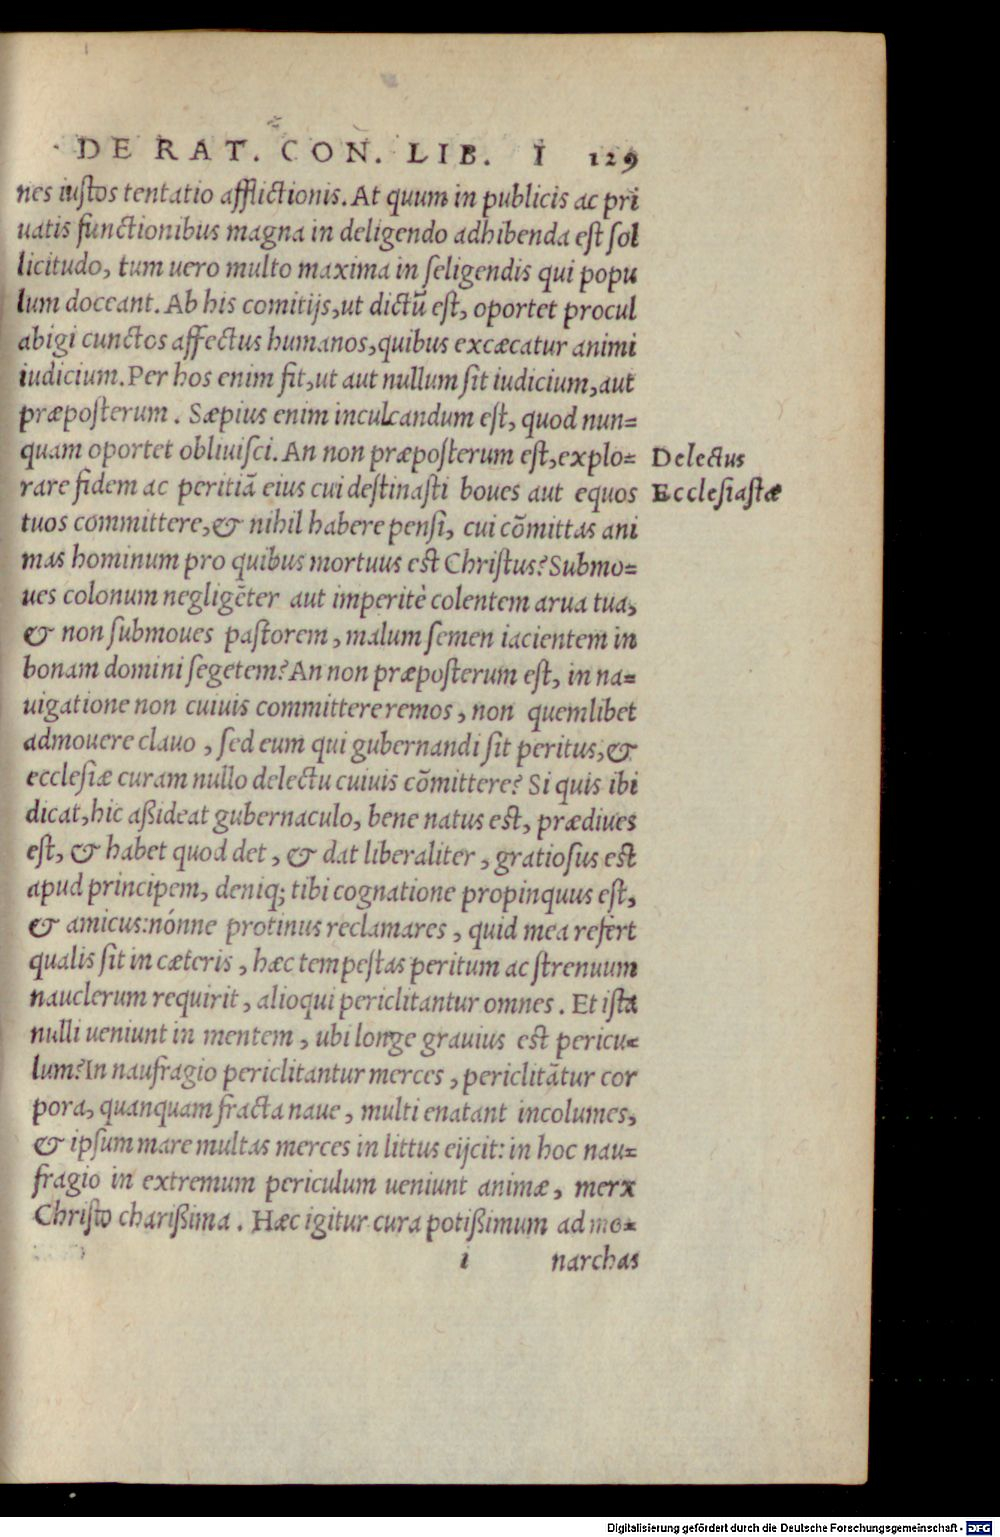 DE RAT. CON. LIB. I 129
nes iustos tentatio afflictionis. At quum in publicis ac pri
uatis functionibus magna in deligendo adhibenda est sol
licitudo, tum uero multo maxima in seligendis qui popu
lum doceant. Ab his comitijs, ut dictū est, oportet procul
abigi cunctos affectus humanos, quibus excæcatur animi
iudicium. Per hos enim fit, ut aut nullum sit iudicium, aut
præposterum. Sæpius enim inculcandum est, quod nun=
quam oportet obliuisci. An non præposterum est, explo=
Delectus
rare fidem ac peritiā eius cui destinasti boues aut equos
Ecclesiastæ
tuos committere, & nihil habere pensi, cui cōmittas ani
mas hominum pro quibus mortuus est Christus? Submo=
ues colonum negligēter aut imperitè colentem arua tua,
& non submoues pastorem, malum semen iacientem in
bonam domini segetem? An non præposterum est, in na=
uigatione non cuiuis committere remos, non quemlibet
admouere clauo, sed eum qui gubernandi sit peritus, &
ecclesiæ curam nullo delectu cuiuis cōmittere? Si quis ibi
dicat, hic aßideat gubernaculo, bene natus est, prædiues
est, & habet quod det, & dat liberaliter, gratiosus est
apud principem, deniq; tibi cognatione propinquus est,
& amicus: nónne protinus reclamares, quid mea refert
qualis sit in cæteris, hæc tempestas peritum ac strenuum
nauclerum requirit, alioqui periclitantur omnes. Et ista
nulli ueniunt in mentem, ubi longe grauius est pericu=
lum? In naufragio periclitantur merces, periclitātur cor
pora, quanquam fracta naue, multi enatant incolumes,
& ipsum mare multas merces in littus eijcit: in hoc nau=
fragio in extremum periculum ueniunt animæ, merx
Christo charißima. Hæc igitur cura potißimum ad mo=
i narchas
Digitalisierung gefördert durch die Deutsche Forschungsgemeinschaft - DFG